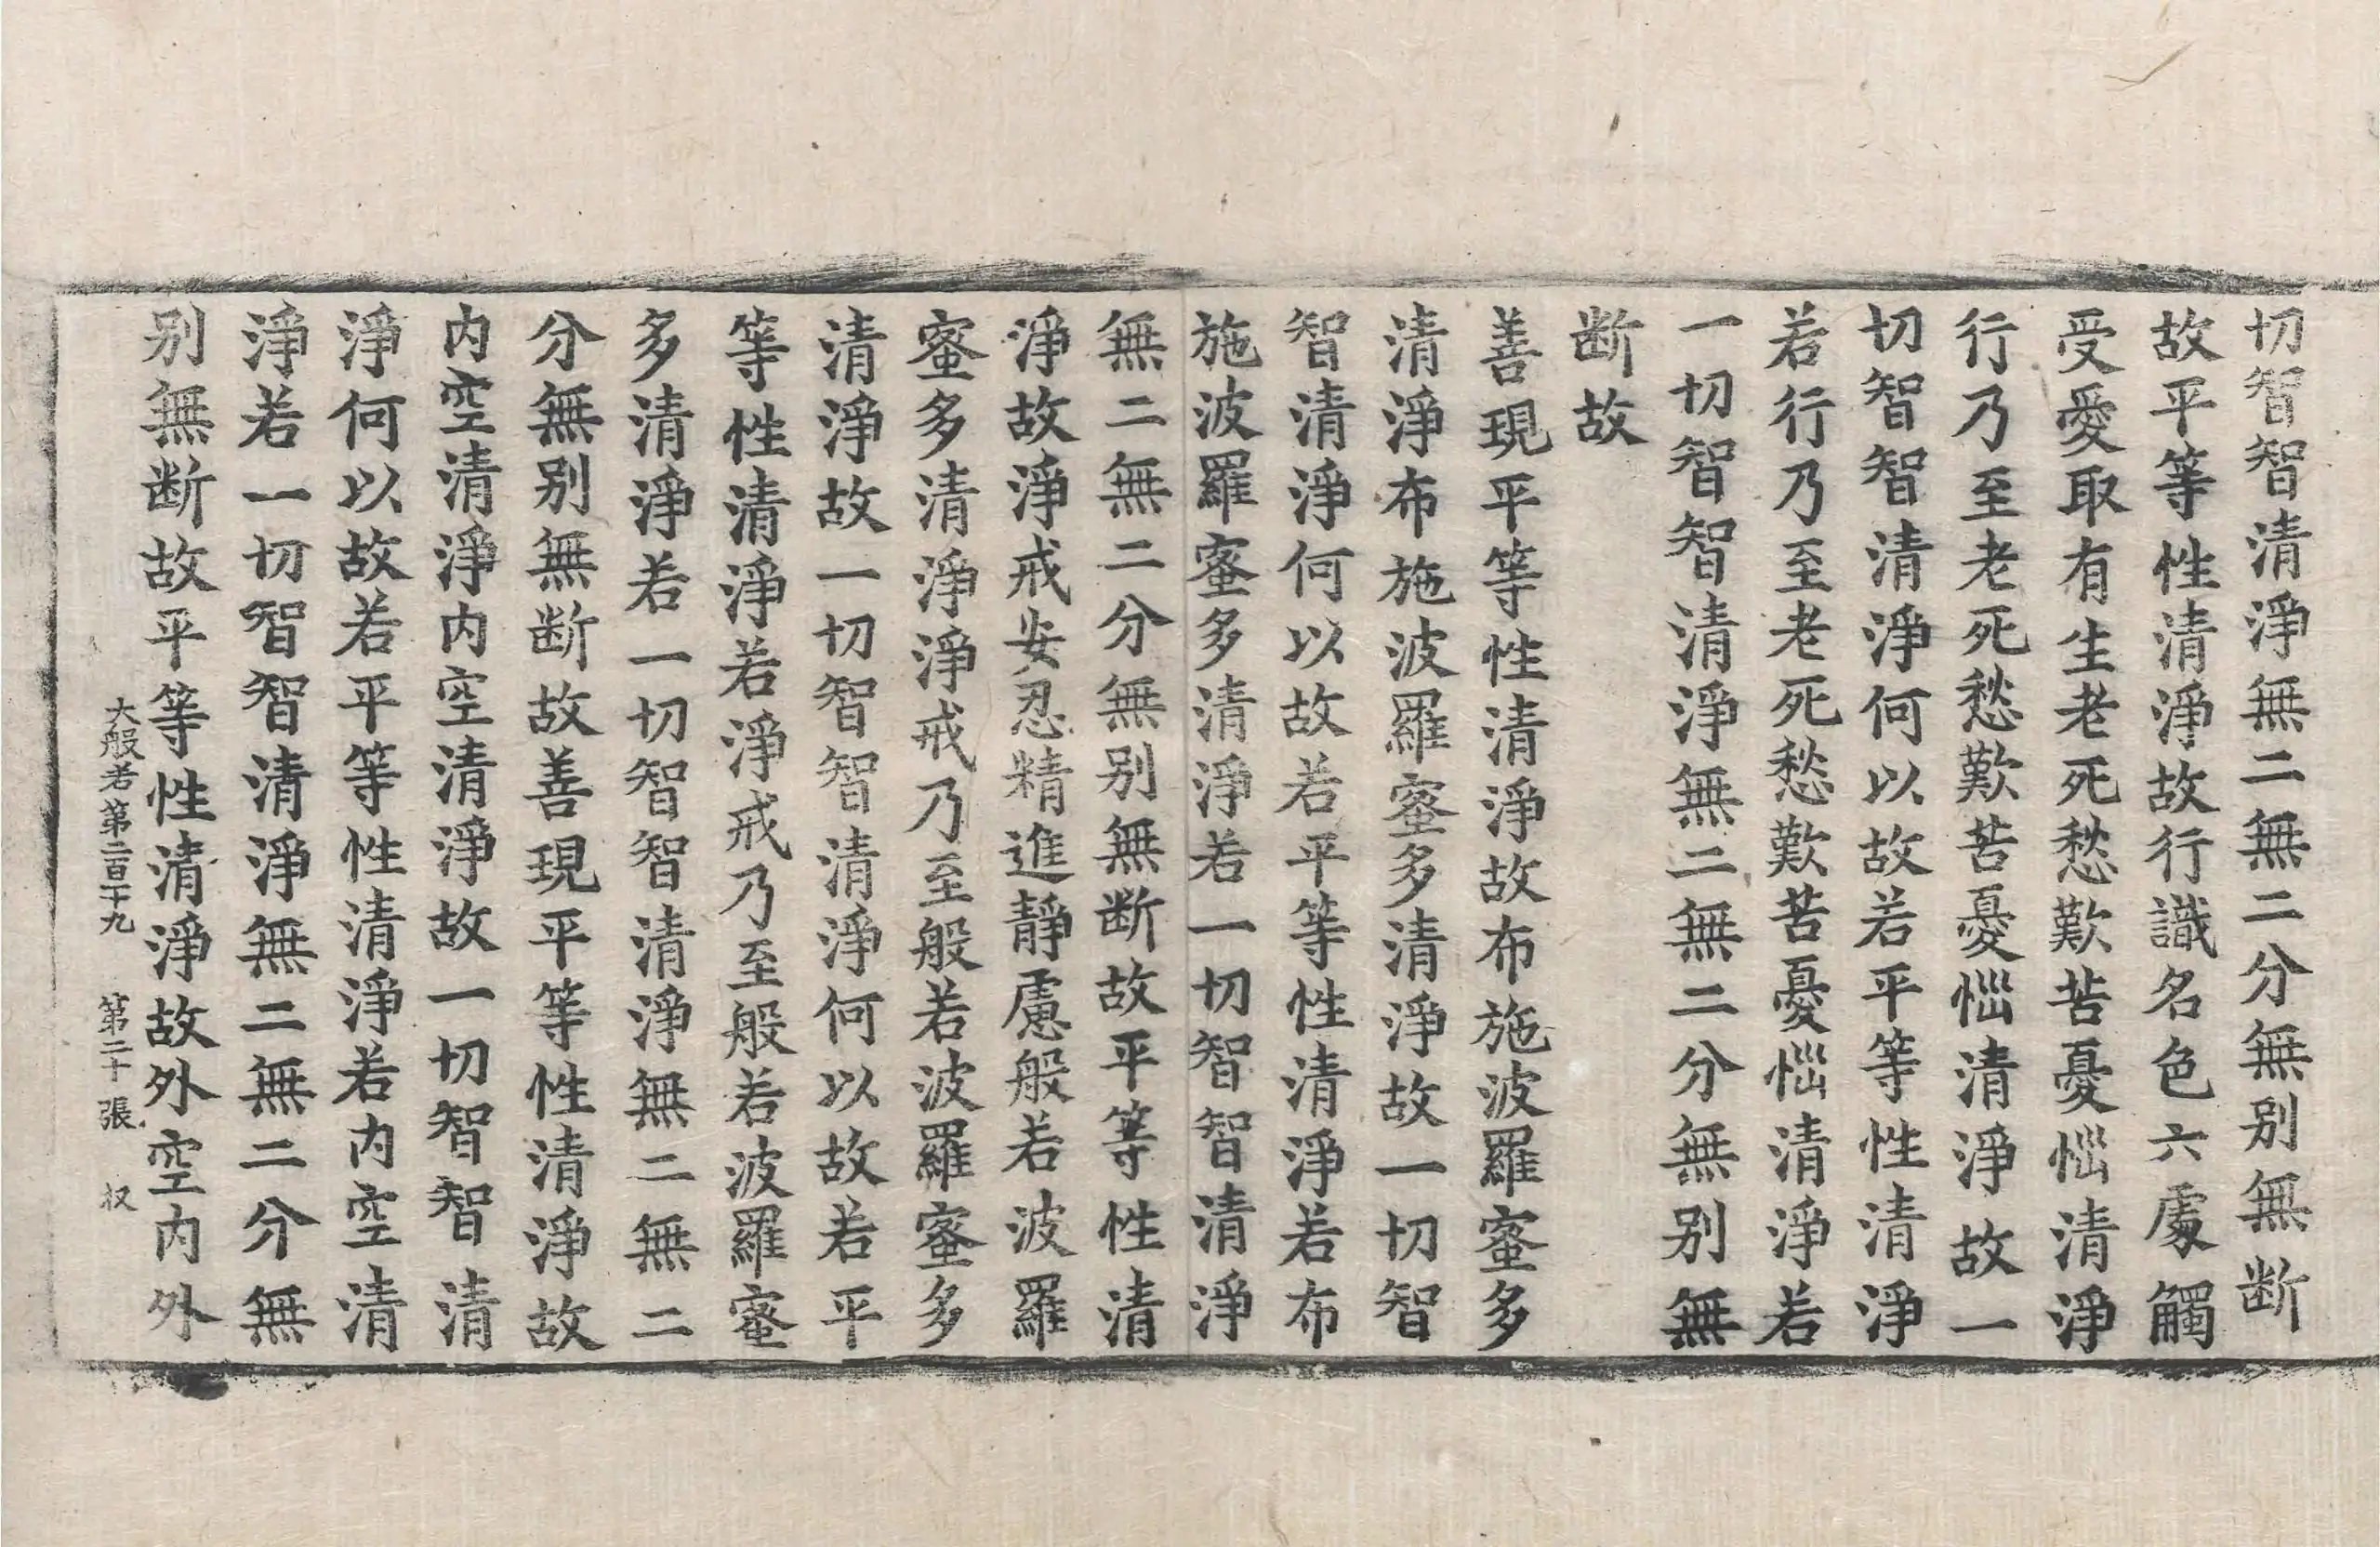 切智智清淨無二無二分無別無断
故平等性清淨故行識名色六處觸
受愛取有生老死愁歎苦憂惱清淨
行乃至老死愁歎苦憂惱清淨故一
切智智清淨何以故若平等性清淨
若行乃至老死愁歎苦憂惱清淨若
一切智智清淨無二無二分無別無
断故
善現平等性清淨故布施波羅蜜多
清淨布施波羅蜜多清淨故一切智
智清淨何以故若平等性清淨若布
施波羅蜜多清淨若一切智智清淨
無二無二分無別無断故平等性清
淨故淨戒安忍精進靜慮般若波羅
蜜多清淨淨戒乃至般若波羅蜜多
清淨故一切智智清淨何以故若平
等性清淨若淨戒乃至般若波羅蜜
多清淨若一切智智清淨無二無二
分無別無断故善現平等性清淨故
内空清淨内空清淨故一切智智清
淨何以故若平等性清淨若内空清
淨若一切智智清淨無二無二分無
別無断故平等性清淨故外空内外
大般若第二百十九 第二十張 㧕